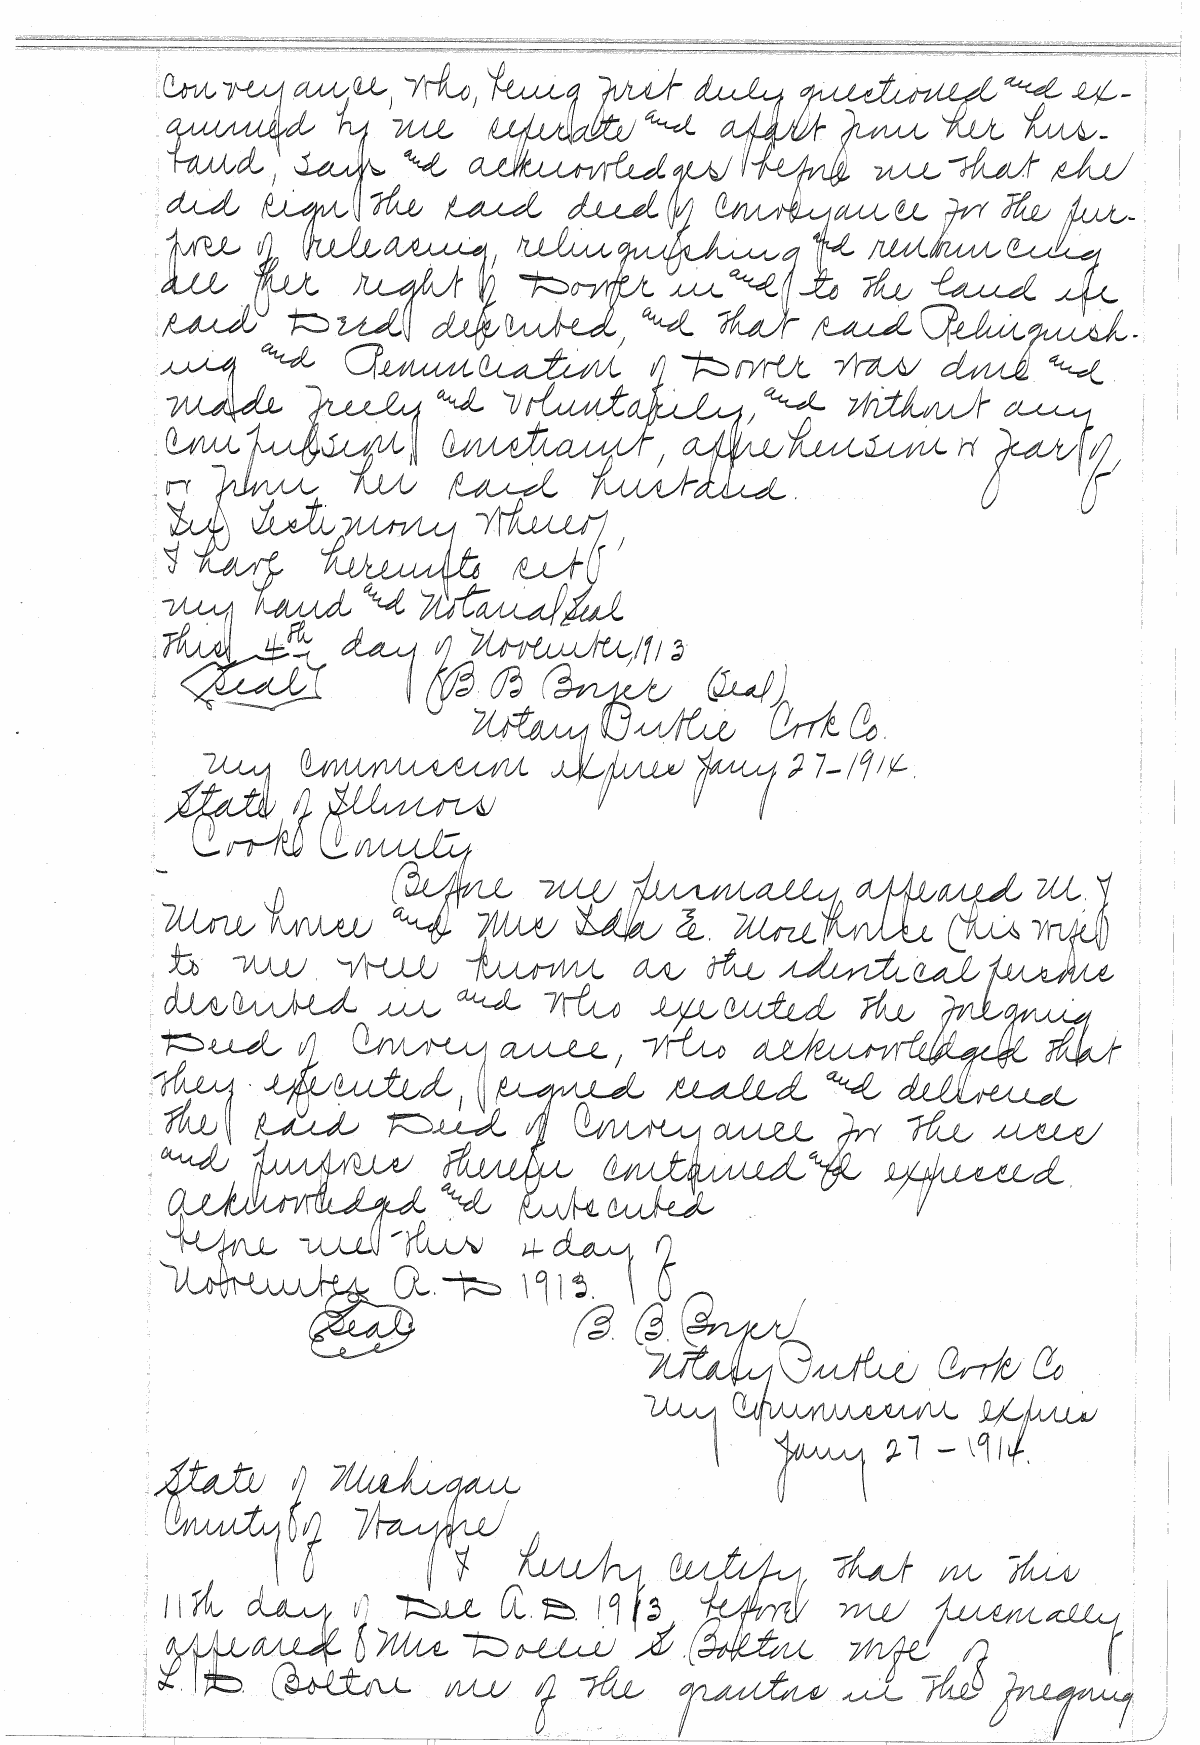 Conveyance, who, being first duly questioned and ex-
amined by me seperate and apart from her hus-
band, says and acknowledges before me that she
did sign the said deed of Conveyance for the pur-
pose of releasing, relinquishing and renouncing
all her right of Dower in and to the land in
said Deed described, and that said Relinquish-
ing and Renunciation of Dower was done and
made freely and voluntarily, and without any
compulsion, constraint, apprehension or fear of,
or from her said husband.
In Testimony Whereof,
I have hereunto set
my hand and Notarial Seal
this 4th day of November, 1913
(Seal) B. B. Boyer (Seal)
Notary Public Cook Co.
My Commission expires Jany 27-1914.
State of Illinois
Cook County
Before me personally appeared M. J
Morehouse and Mrs Ida E. Morehouse (his wife)
to me well known as the identical persons
described in and who executed the foregoing
Deed of Conveyance, who acknowledged that
they executed, signed sealed and delivered
the said Deed of Conveyance for the uses
and purposes therein contained and expressed.
Acknowledged and subscribed
before me this 4 day of
November A. D 1913.
(Seal) B. B. Boyer
Notary Public Cook Co
My Commission expires
Jany 27-1914.
State of Michigan
County of Wayne
I hereby certify that on this
11th day of Dec A.D. 1913, before me personally
appeared Mrs Dollie S Bolton wife of
L. D. Bolton one of the grantors in the foregoing